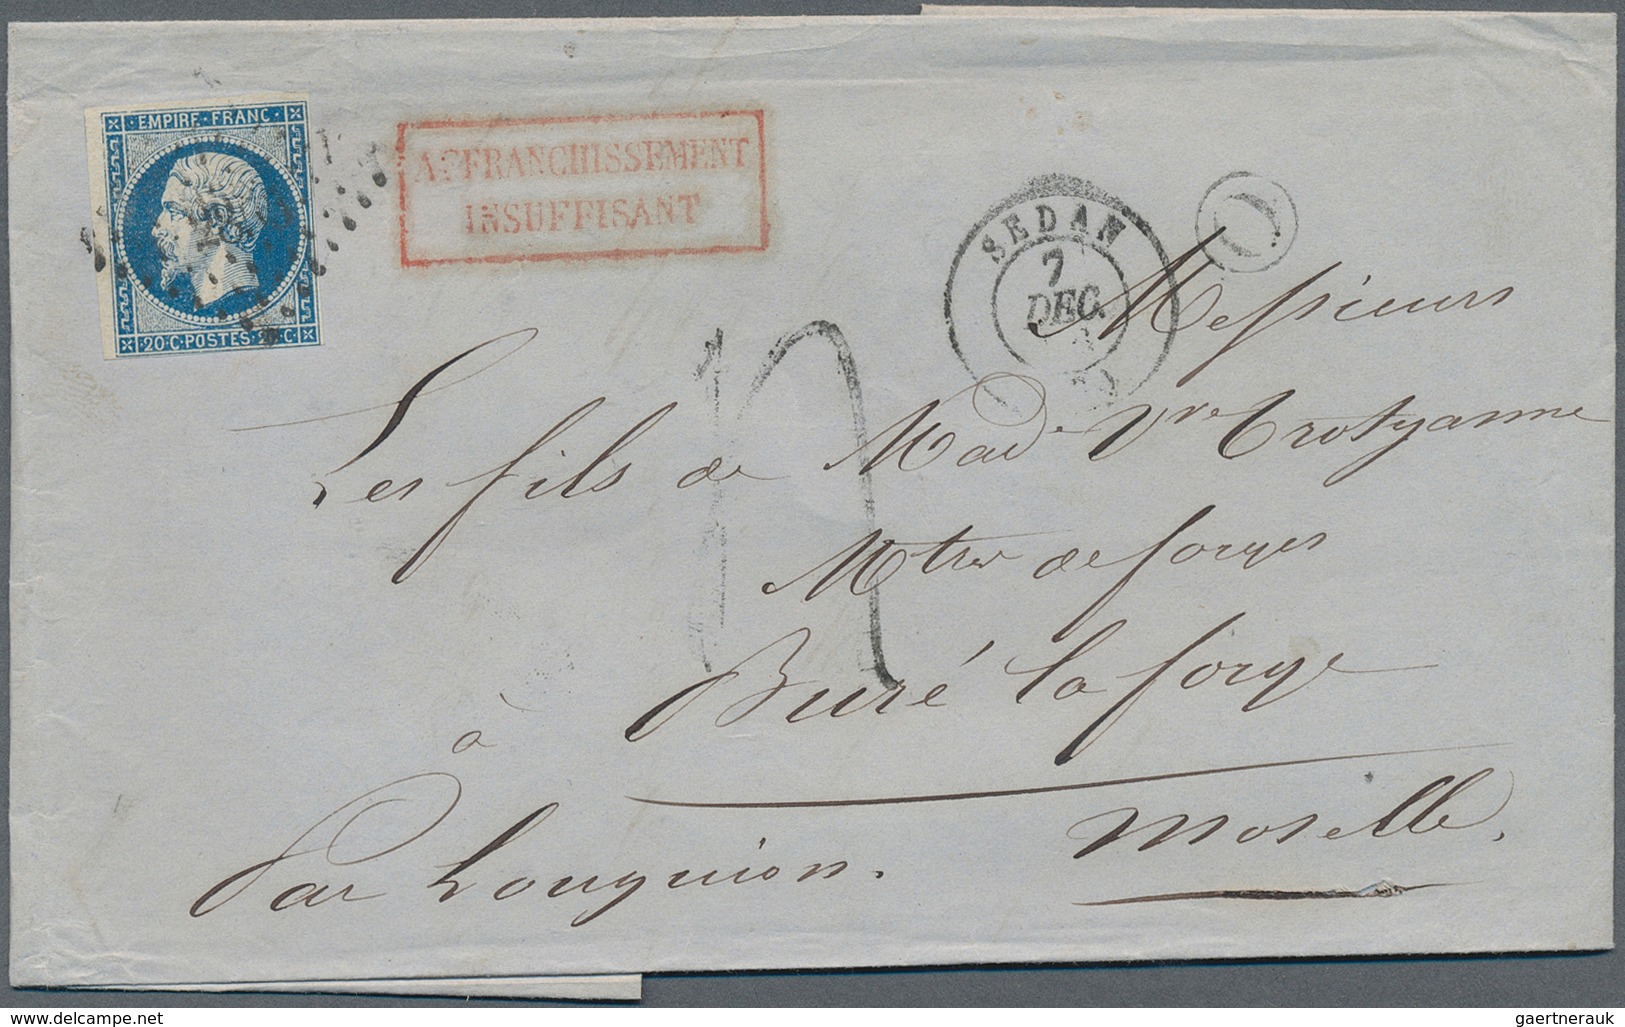 EMPIRE · FRANC ·
20 · C · POSTES · 20 · C ·
AFFRANCHISSEMENT
INSUFFISANT
SEDAN
7
DEC.
O
Messieurs
Les fils de Made Vve Trotyanne
Mtres de forges
à Buré la forge
Par Longuion. Moselle.
www.delcampe.net
gaertnerauk